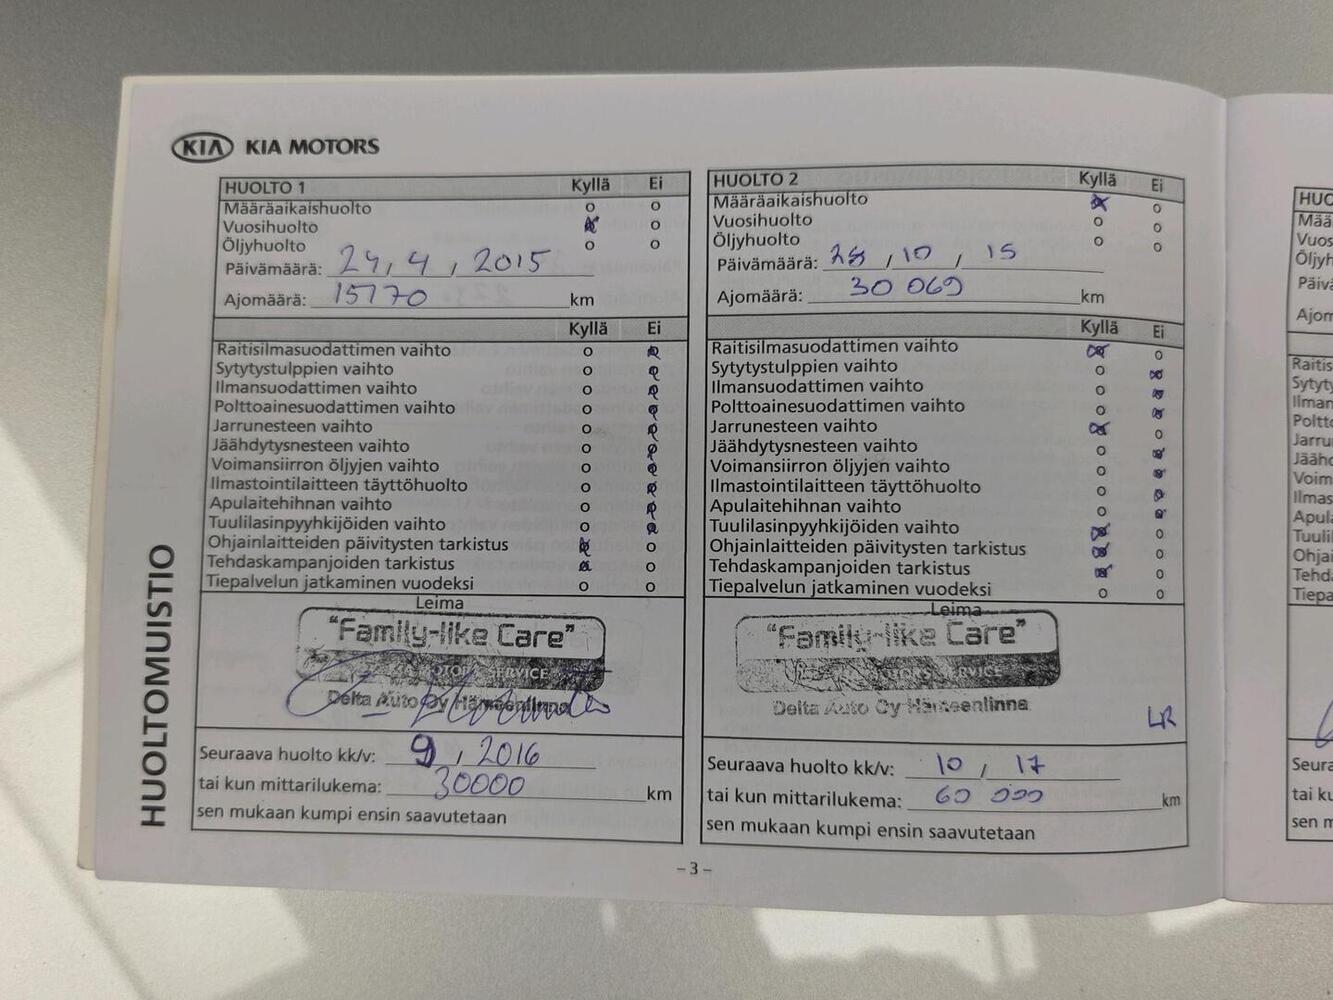 KIA KIA MOTORS
HUOLTOMUISTIO
HUOLTO 1 Kyllä Ei
Määräaikaishuolto o o
Vuosihuolto o
Öljyhuolto o o
Päivämäärä: 24, 4, 2015
Ajomäärä: 15770 km
Kyllä Ei
Raitisilmasuodattimen vaihto o
Sytytystulppien vaihto o
Ilmansuodattimen vaihto o
Polttoainesuodattimen vaihto o
Jarrunesteen vaihto o
Jäähdytysnesteen vaihto o
Voimansiirron öljyjen vaihto o
Ilmastointilaitteen täyttöhuolto o
Apulaitehihnan vaihto o
Tuulilasinpyyhkijöiden vaihto o
Ohjainlaitteiden päivitysten tarkistus o
Tehdaskampanjoiden tarkistus o
Tiepalvelun jatkaminen vuodeksi o o
Leima
"Family-like Care"
KIA MOTORS SERVICE
Delta Auto Oy Hämeenlinna
Seuraava huolto kk/v: 9, 2016
tai kun mittarilukema: 30000 km
sen mukaan kumpi ensin saavutetaan
HUOLTO 2 Kyllä Ei
Määräaikaishuolto o
Vuosihuolto o o
Öljyhuolto o o
Päivämäärä: 28, 10, 15
Ajomäärä: 30 069 km
Kyllä Ei
Raitisilmasuodattimen vaihto o
Sytytystulppien vaihto o
Ilmansuodattimen vaihto o
Polttoainesuodattimen vaihto o
Jarrunesteen vaihto o
Jäähdytysnesteen vaihto o
Voimansiirron öljyjen vaihto o
Ilmastointilaitteen täyttöhuolto o
Apulaitehihnan vaihto o
Tuulilasinpyyhkijöiden vaihto o
Ohjainlaitteiden päivitysten tarkistus o
Tehdaskampanjoiden tarkistus o
Tiepalvelun jatkaminen vuodeksi o o
Leima
"Family-like Care"
MOTORS SERVICE
Delta Auto Oy Hämeenlinna
LR
Seuraava huolto kk/v: 10, 17
tai kun mittarilukema: 60 000 km
sen mukaan kumpi ensin saavutetaan
– 3 –
HUO
Mää
Vuos
Öljyh
Päivä
Ajom
Raitis
Sytyt
Ilman
Poltt
Jarru
Jääh
Voim
Ilmas
Apul
Tuuli
Ohja
Tehd
Tiepa
Seura
tai ku
sen m